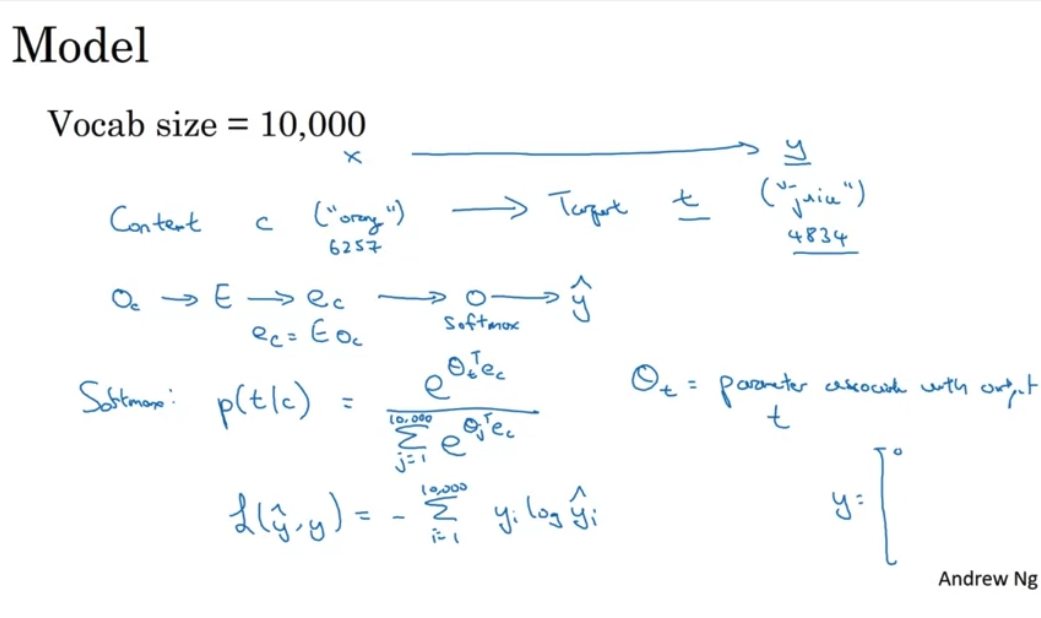 Model
Vocab size = 10,000
x → y
Context c ("orange") → Target t ("juice")
6257 4834
O_c → E → e_c → o → ŷ
e_c = E O_c softmax
Softmax: p(t|c) = e^{θ_t^T e_c} / Σ_{j=1}^{10,000} e^{θ_j^T e_c} θ_t = parameter associated with output t
ℒ(ŷ, y) = - Σ_{i=1}^{10,000} y_i log ŷ_i y = [ 0
Andrew Ng